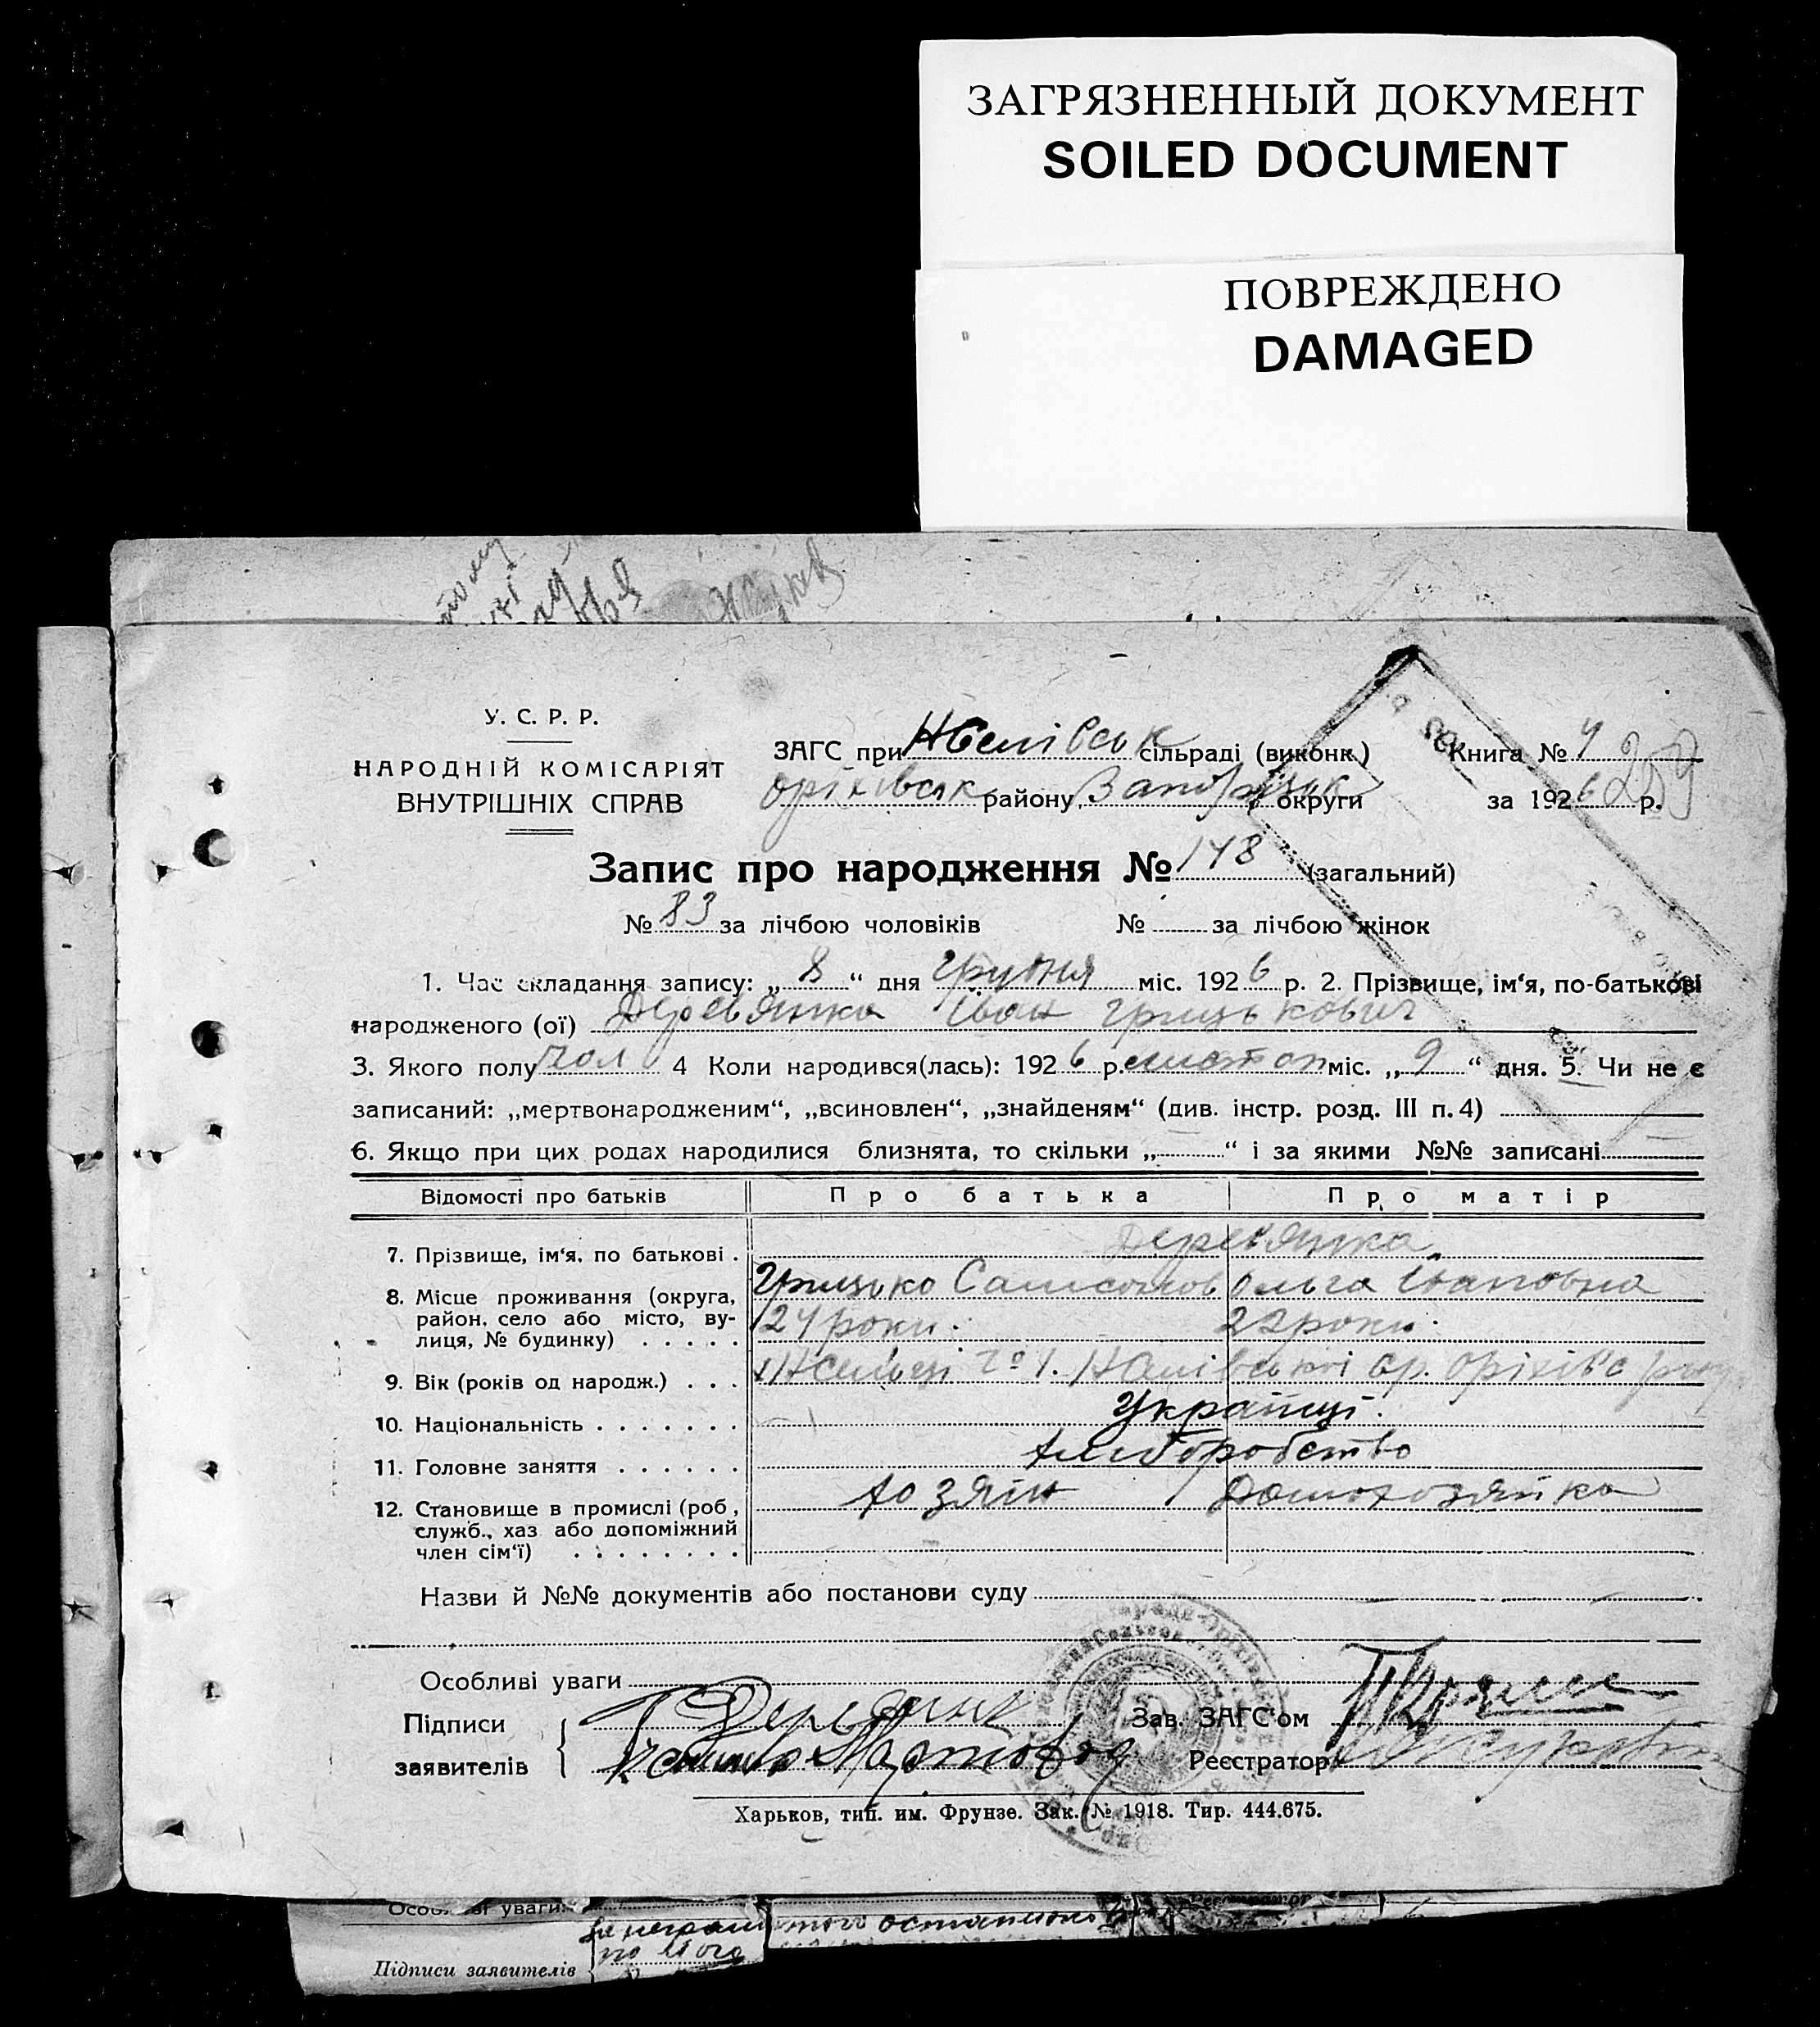 ЗАГРЯЗНЕННЫЙ ДОКУМЕНТ
SOILED DOCUMENT
ПОВРЕЖДЕНО
DAMAGED
У. С. Р. Р.
НАРОДНІЙ КОМІСАРІЯТ
ВНУТРІШНІХ СПРАВ
ЗАГС при сільраді (виконк.) Книга № 4
Оріхівськ району Запоріжськ округи за 1926 р. 259
Запис про народження № 148 (загальний)
№ 83 за лічбою чоловіків № за лічбою жінок
1. Час складання запису: „ 8 “ дня грудня міс. 1926 р. 2. Прізвище, ім‘я, по-батькові
народженого (ої) Деревянка Іван Грицькович
3. Якого полу чол 4 Коли народився(лась): 1926 р. листоп міс. „ 9 “ дня. 5. Чи не є
записаний: „мертвонародженим“, „всиновлен“, „знайденям“ (див. інстр. розд. III п. 4)
6. Якщо при цих родах народилися близнята, то скільки „ “ і за якими №№ записані
Відомості про батьків Про батька Про матір
7. Прізвище, ім‘я, по батькові . Деревянка
Грицько Самсонов Ольга Івановна
8. Місце проживання (округа,
район, село або місто, ву-
лиця, № будинку) . . . . .
24 роки. 22 роки.
9. Вік (років од народж.) . . . № 1. ср. Оріхівс
10. Національність . . . . . . . Українці.
11. Головне заняття . . . . . . Хліборобство
12. Становище в промислі (роб., Хозяін Домохозяйка
служб., хаз або допоміжний
член сім‘ї) . . . . . . . .
Назви й №№ документів або постанови суду
Особливі уваги
Підписи Зав. ЗАГС‘ом
заявителів Реєстратор
Харьков, тип. им. Фрунзе. Зак. № 1918. Тир. 444.675.
уваги
Підписи заявителів